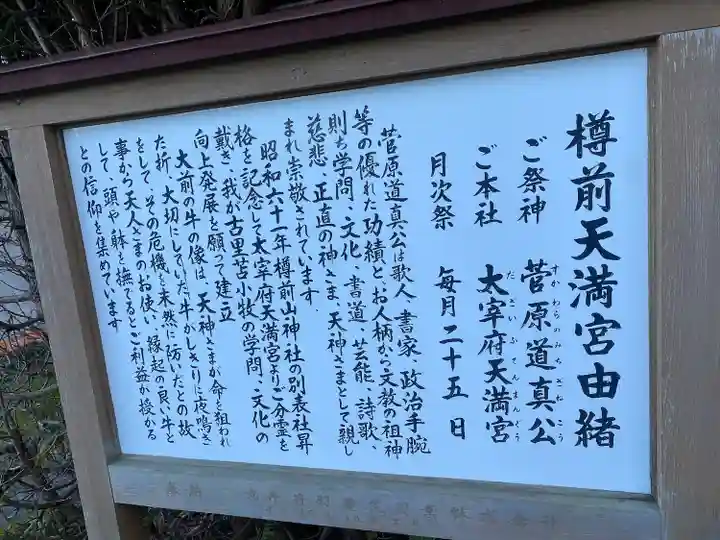 樽前天満宮由緒
ご祭神 菅原道真公
すがわらのみちざねこう
ご本社 太宰府天満宮
だざいふてんまんぐう
月次祭 毎月二十五日
菅原道真公は歌人、書家、政治手腕
等の優れた功績と、お人柄から文教の祖神
則ち学問、文化、書道、芸能、詩歌、
慈悲、正直の神さま、天神さまとして親し
まれ崇敬されています。
昭和六十一年樽前山神社の別表社昇
格を記念して太宰府天満宮よりご分霊を
戴き、我が古里苫小牧の学問、文化の
向上発展を願って建立
大前の牛の像は、天神さまが命を狙われ
た折、大切にしていた、牛がしきりに夜鳴き
をして、その危機を未然に防いだとの故
事から天神さまのお使い、縁起の良い牛と
して、頭や躰を撫でるとご利益が授かる
との信仰を集めています